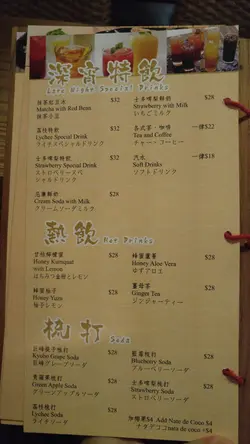 深宵特飲
Late Night Special Drinks
抹茶紅豆冰 $32
Matcha with Red Bean
抹茶小豆
士多啤梨鮮奶 $28
Strawberry with Milk
いちごミルク
荔枝特飲 $32
Lychee Special Drink
ライチスペシャルドリンク
各式茶、咖啡 一律$22
Tea and Coffee
チャー コーヒー
士多啤梨特飲 $32
Strawberry Special Drink
ストロベリースペ
シャルドリンク
汽水 一律$18
Soft Drinks
ソフトドリンク
忌廉鮮奶 $28
Cream Soda with Milk
クリームソーダミルク
熱飲 Hot Drinks
甘桔檸檬蜜 $28
Honey Kumquat
with Lemon
はちみつ金柑とレモン
蜂蜜蘆薈 $28
Honey Aloe Vera
ゆずアロエ
蜂蜜柚子 $28
Honey Yuzu
柚子レモン
薑母茶 $28
Ginger Tea
ジンジャーティー
梳打 Soda
巨峰提子梳打 $28
Kyoho Grape Soda
巨峰グレープソーダ
藍莓梳打 $28
Blueberry Soda
ブルーベリーソーダ
青蘋果梳打 $28
Green Apple Soda
グリーンアップルソーダ
士多啤梨梳打 $28
Strawberry Soda
ストロベリーソーダ
荔枝梳打 $28
Lychee Soda
ライチソーダ
加椰果$4 Add Note de Coco $4
nata de coco +$4